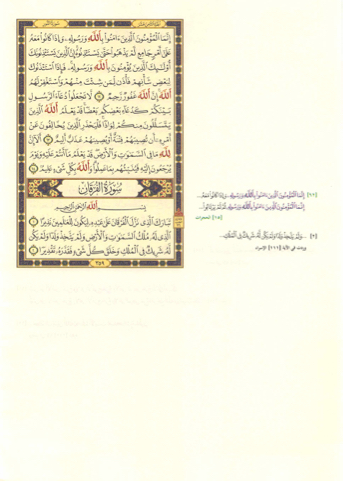 إِنَّمَا ٱلْمُؤْمِنُونَ ٱلَّذِينَ ءَامَنُوا۟ بِٱللَّهِ وَرَسُولِهِۦ وَإِذَا كَانُوا۟ مَعَهُۥ
عَلَىٰٓ أَمْرٍ جَامِعٍ لَّمْ يَذْهَبُوا۟ حَتَّىٰ يَسْتَـْٔذِنُوهُ إِنَّ ٱلَّذِينَ يَسْتَـْٔذِنُونَكَ
أُو۟لَٰٓئِكَ ٱلَّذِينَ يُؤْمِنُونَ بِٱللَّهِ وَرَسُولِهِۦ فَإِذَا ٱسْتَـْٔذَنُوكَ
لِبَعْضِ شَأْنِهِمْ فَأْذَن لِّمَن شِئْتَ مِنْهُمْ وَٱسْتَغْفِرْ لَهُمُ
ٱللَّهَ إِنَّ ٱللَّهَ غَفُورٌ رَّحِيمٌ ٦٢ لَّا تَجْعَلُوا۟ دُعَآءَ ٱلرَّسُولِ
بَيْنَكُمْ كَدُعَآءِ بَعْضِكُم بَعْضًا قَدْ يَعْلَمُ ٱللَّهُ ٱلَّذِينَ
يَتَسَلَّلُونَ مِنكُمْ لِوَاذًا فَلْيَحْذَرِ ٱلَّذِينَ يُخَالِفُونَ عَنْ
أَمْرِهِۦٓ أَن تُصِيبَهُمْ فِتْنَةٌ أَوْ يُصِيبَهُمْ عَذَابٌ أَلِيمٌ ٦٣ أَلَآ إِنَّ
لِلَّهِ مَا فِى ٱلسَّمَٰوَٰتِ وَٱلْأَرْضِ قَدْ يَعْلَمُ مَآ أَنتُمْ عَلَيْهِ وَيَوْمَ
يُرْجَعُونَ إِلَيْهِ فَيُنَبِّئُهُم بِمَا عَمِلُوا۟ وَٱللَّهُ بِكُلِّ شَىْءٍ عَلِيمٌۢ ٦٤
سُورَةُ الْفُرْقَانِ
بِسْمِ ٱللَّهِ ٱلرَّحْمَٰنِ ٱلرَّحِيمِ
تَبَارَكَ ٱلَّذِى نَزَّلَ ٱلْفُرْقَانَ عَلَىٰ عَبْدِهِۦ لِيَكُونَ لِلْعَٰلَمِينَ نَذِيرًا ١
ٱلَّذِى لَهُۥ مُلْكُ ٱلسَّمَٰوَٰتِ وَٱلْأَرْضِ وَلَمْ يَتَّخِذْ وَلَدًا وَلَمْ يَكُن
لَّهُۥ شَرِيكٌ فِى ٱلْمُلْكِ وَخَلَقَ كُلَّ شَىْءٍ فَقَدَّرَهُۥ تَقْدِيرًا ٢
٣٥٩
(٦٢) إِنَّمَا ٱلْمُؤْمِنُونَ ٱلَّذِينَ ءَامَنُوا۟ بِٱللَّهِ وَرَسُولِهِۦ وَإِذَا كَانُوا۟ مَعَهُۥ...
إِنَّمَا ٱلْمُؤْمِنُونَ ٱلَّذِينَ ءَامَنُوا۟ بِٱللَّهِ وَرَسُولِهِۦ ثُمَّ لَمْ يَرْتَابُوا۟...
[١٥] الحجرات
(٢) ... وَلَمْ يَتَّخِذْ وَلَدًا وَلَمْ يَكُن لَّهُۥ شَرِيكٌ فِى ٱلْمُلْكِ...
وردت في الآية [١١١] الإسراء